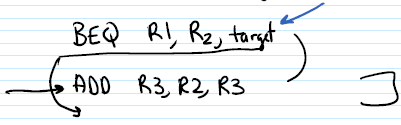 BEQ R1, R2, target
ADD R3, R2, R3